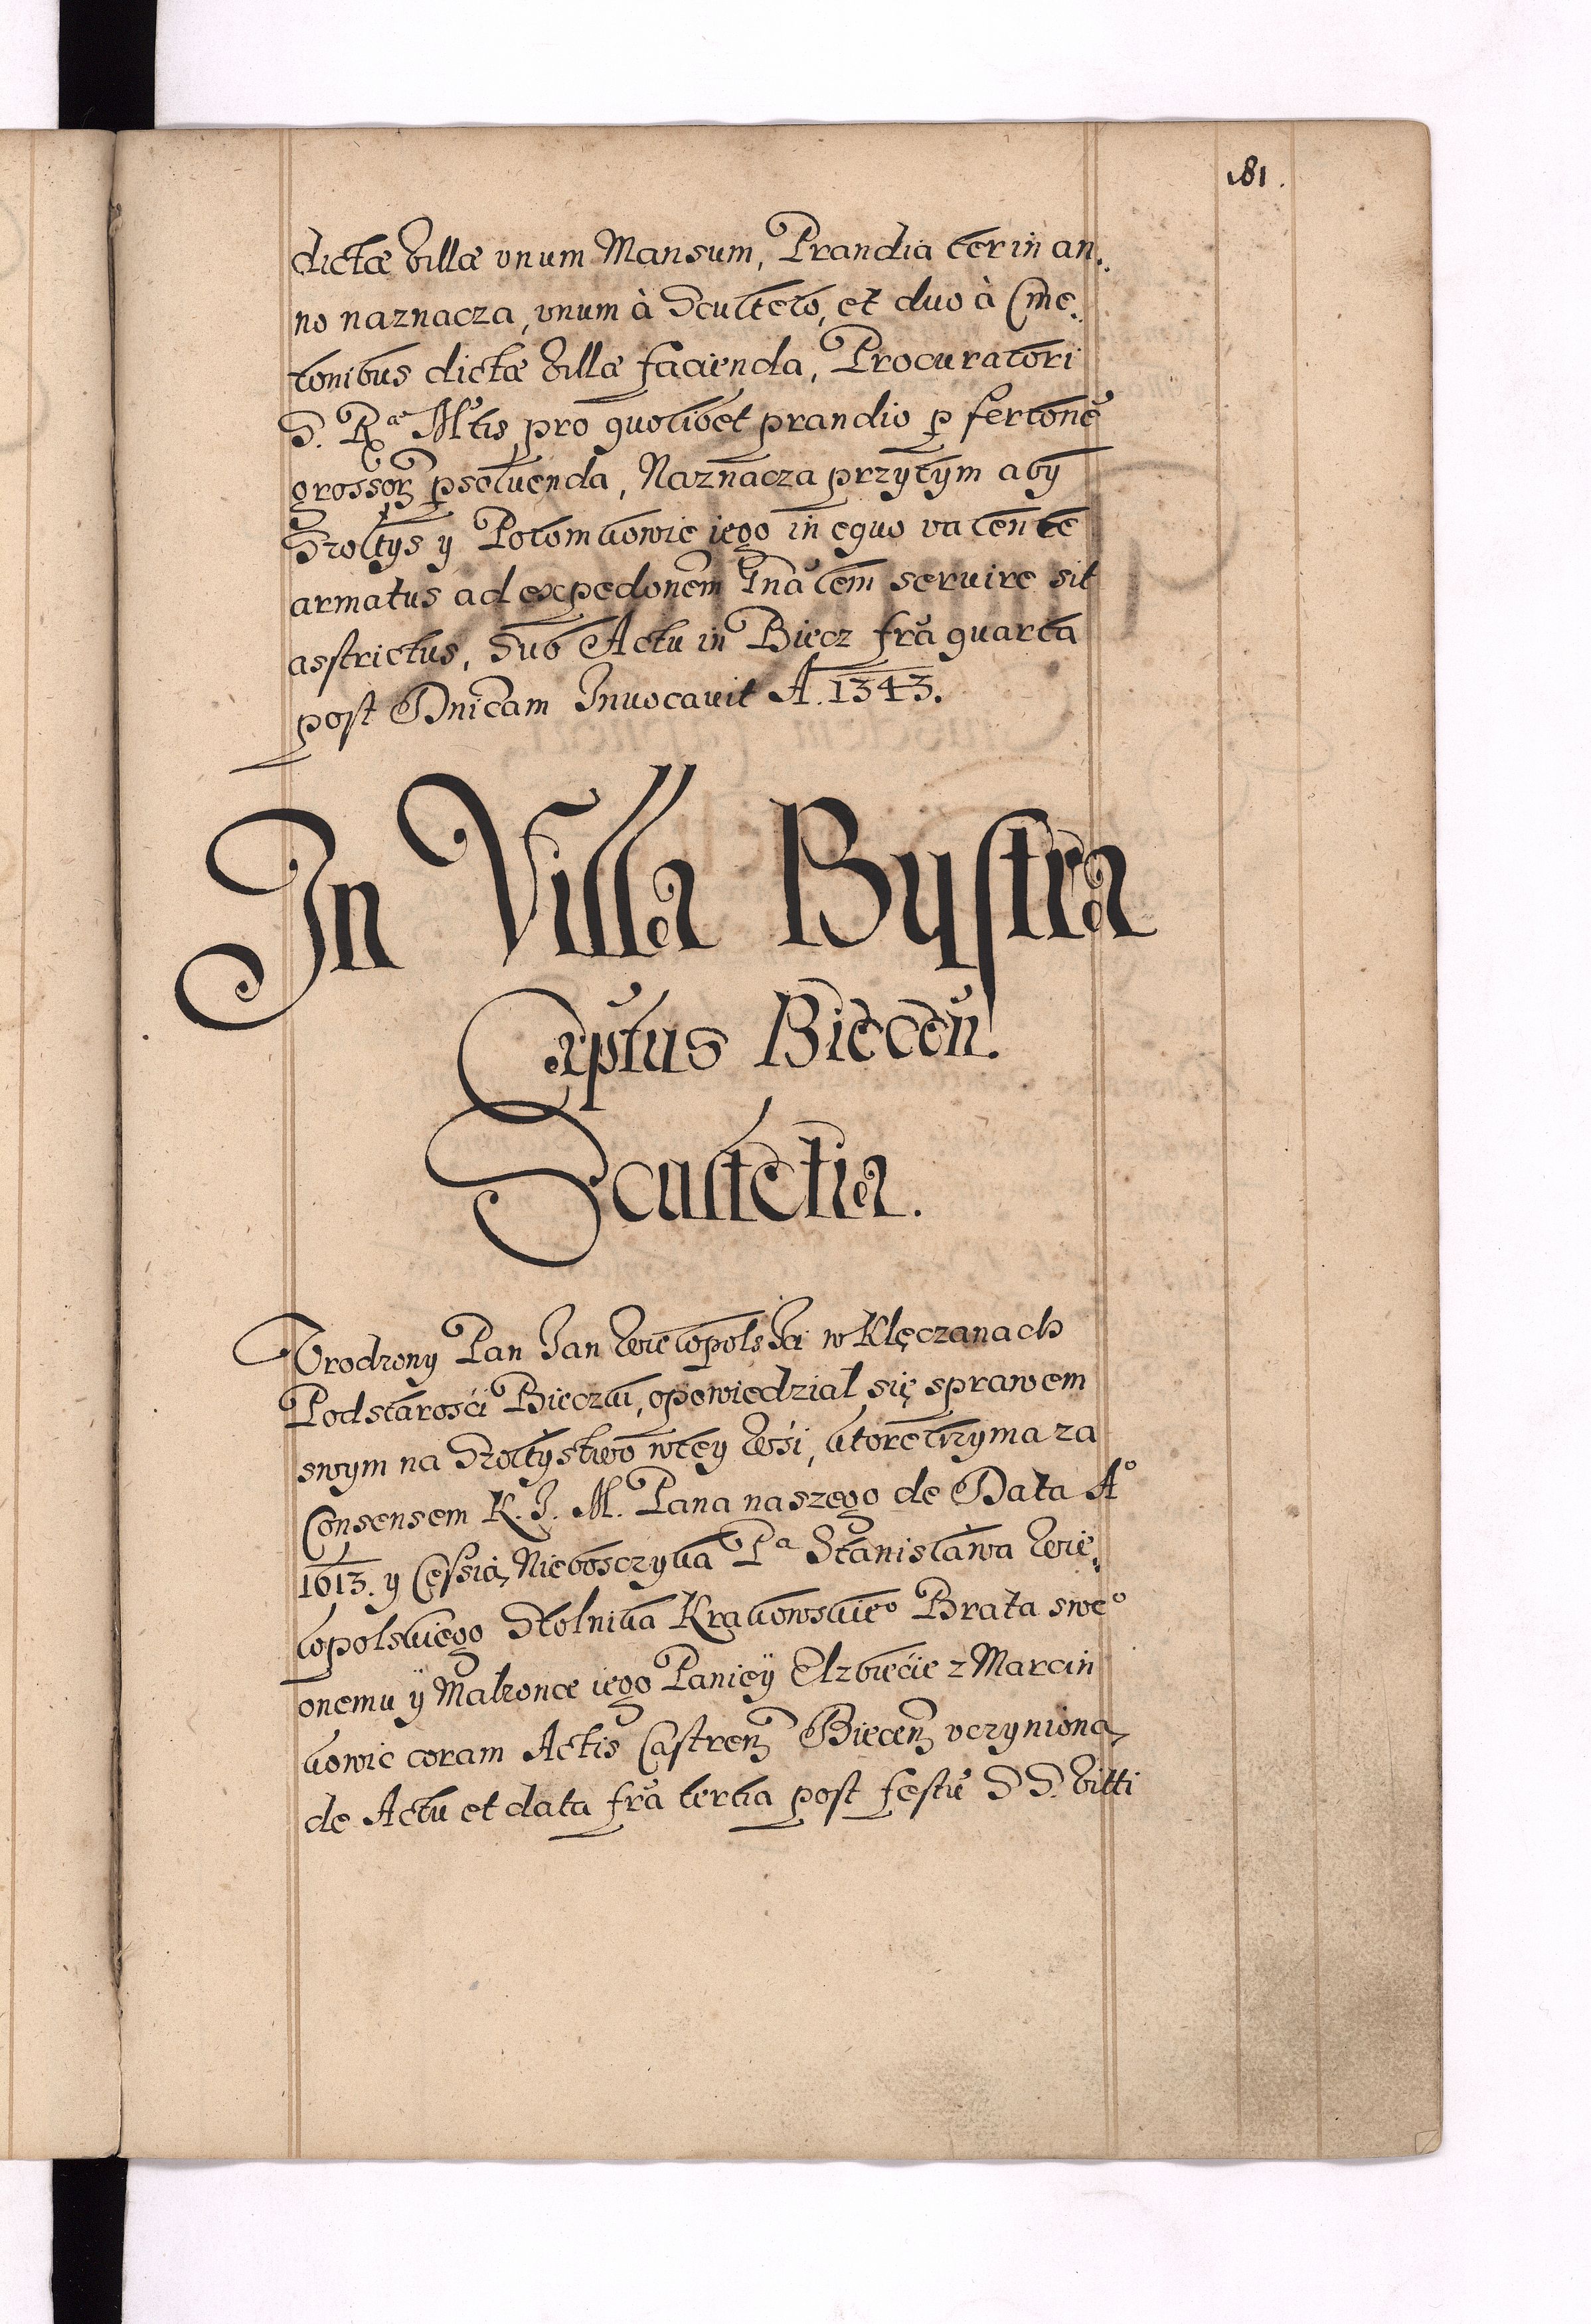 181.
dictæ villæ vnum Mansum, Prandia ter in an„
no naznacza, vnum à Sculteto, et duo à Cme„
tonibus dictæ villæ facienda, Procuratori
S. Rae Mtis pro quolibet prandio p fertonē
grossorz psoluenda, Naznacza przytym aby
Szoltys y Potomkowie iego in equo valente
armatus ad expedonem Gnalem seruire sit
asstrictus, Sub Actu in Biecz fra quarta
post Dnicam Inuocauit A. 1343.
In Villa Bystra
Captus Biecen.
Scultetia.
Vrodzony Pan Jan Wielopolski w Klęczanach
Podstarości Bieczki, opowiedział się z prawem
swym na Szoltystwo w tey wśi, ktore trzyma za
Consensem K. J. M. Pana naszego de Data Aº
1613. y Cessią Nieboszczyka Pa Stanisława Wie„
lopolskiego Stolnika Krakowskieº Brata sweº
onemu ÿ Małzonce iego Panieÿ Elzbiećie z Marcin
kowic coram Actis Castrenz Biecenz vczynioną
de Actu et data fra tertia post festū S S. Vitti